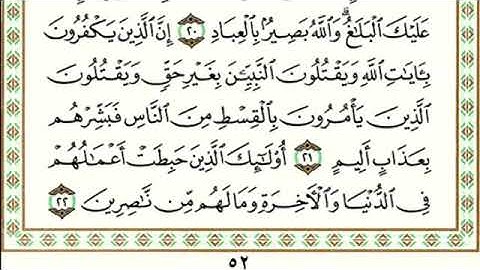 عَلَيْكَ ٱلْبَلَٰغُ ۗ وَٱللَّهُ بَصِيرٌۢ بِٱلْعِبَادِ ٢٠ إِنَّ ٱلَّذِينَ يَكْفُرُونَ
بِـَٔايَٰتِ ٱللَّهِ وَيَقْتُلُونَ ٱلنَّبِيِّـۧنَ بِغَيْرِ حَقٍّ وَيَقْتُلُونَ
ٱلَّذِينَ يَأْمُرُونَ بِٱلْقِسْطِ مِنَ ٱلنَّاسِ فَبَشِّرْهُم
بِعَذَابٍ أَلِيمٍ ٢١ أُو۟لَٰٓئِكَ ٱلَّذِينَ حَبِطَتْ أَعْمَٰلُهُمْ
فِى ٱلدُّنْيَا وَٱلْـَٔاخِرَةِ وَمَا لَهُم مِّن نَّٰصِرِينَ ٢٢
٥٢